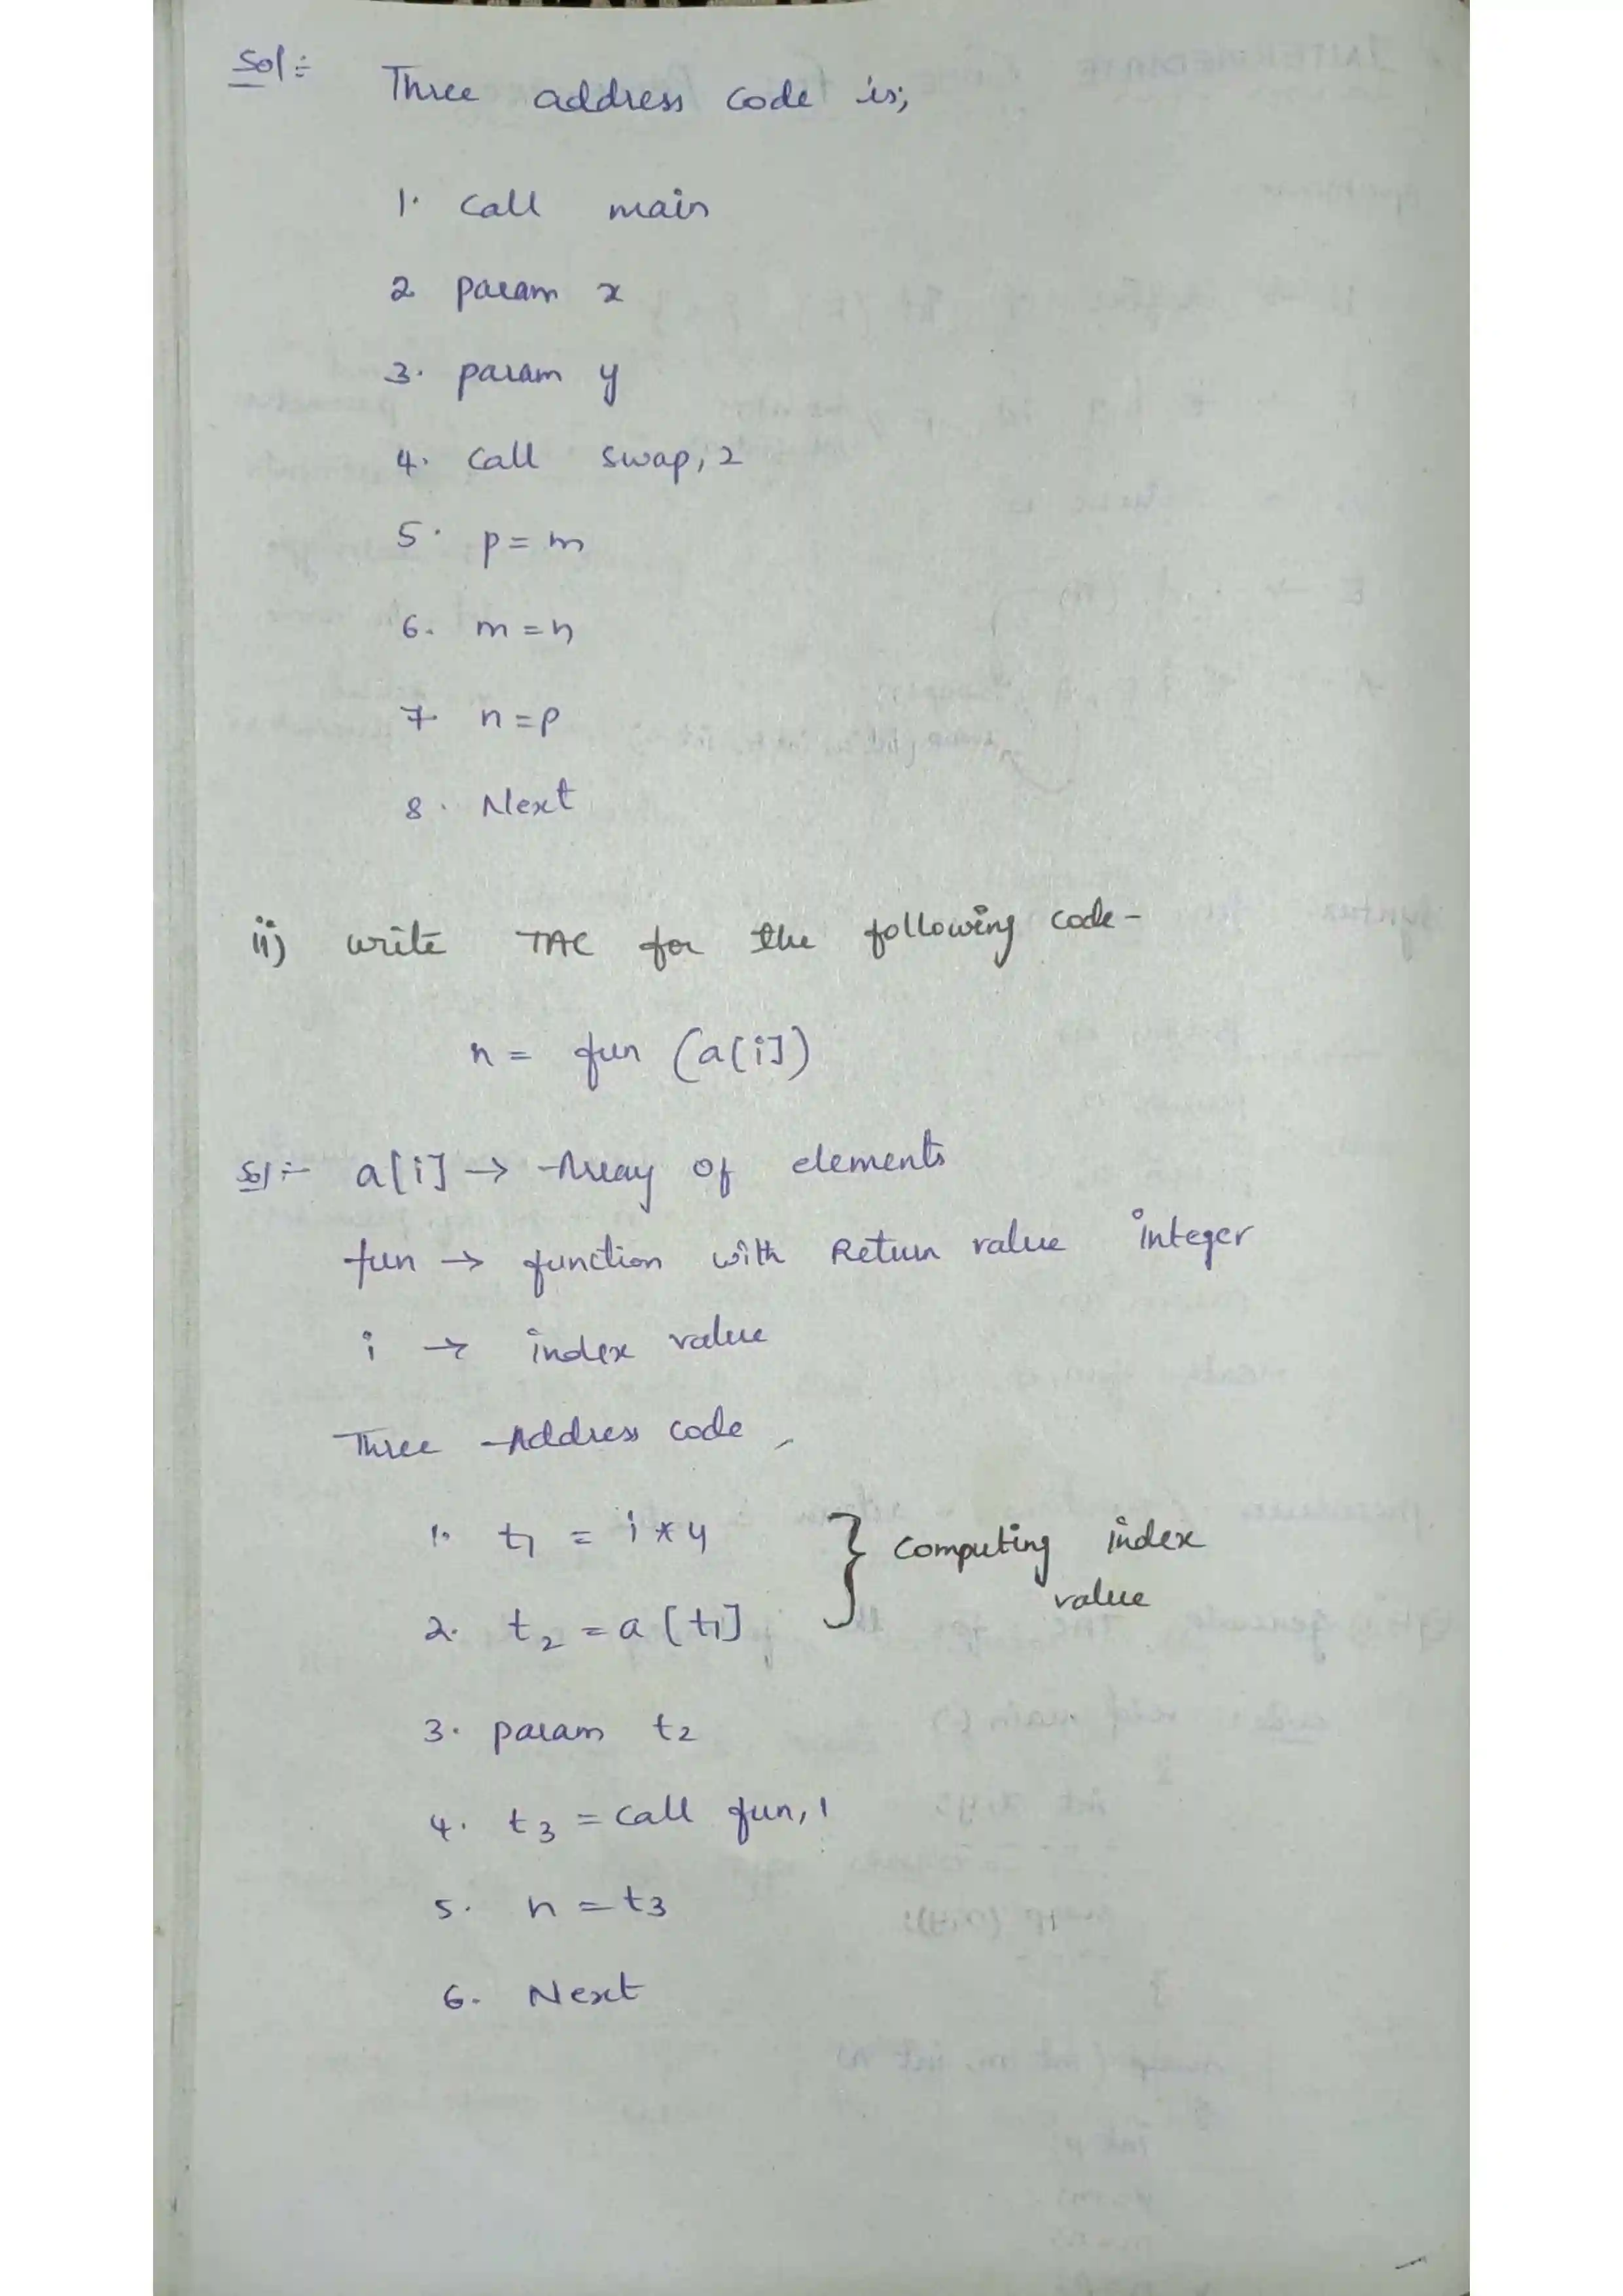 Sol:-
Three address code is;
1. Call main
2 param x
3. param y
4. Call swap, 2
5. p = m
6. m = n
7 n = p
8. Next
ii) write TAC for the following code -
n = fun (a[i])
Sol:- a[i] → Array of elements
fun → function with Return value integer
i → index value
Three Address code,
1. t1 = i * 4 } Computing index
value
2. t2 = a [t1]
3. param t2
4. t3 = Call fun, 1
5. n = t3
6. Next